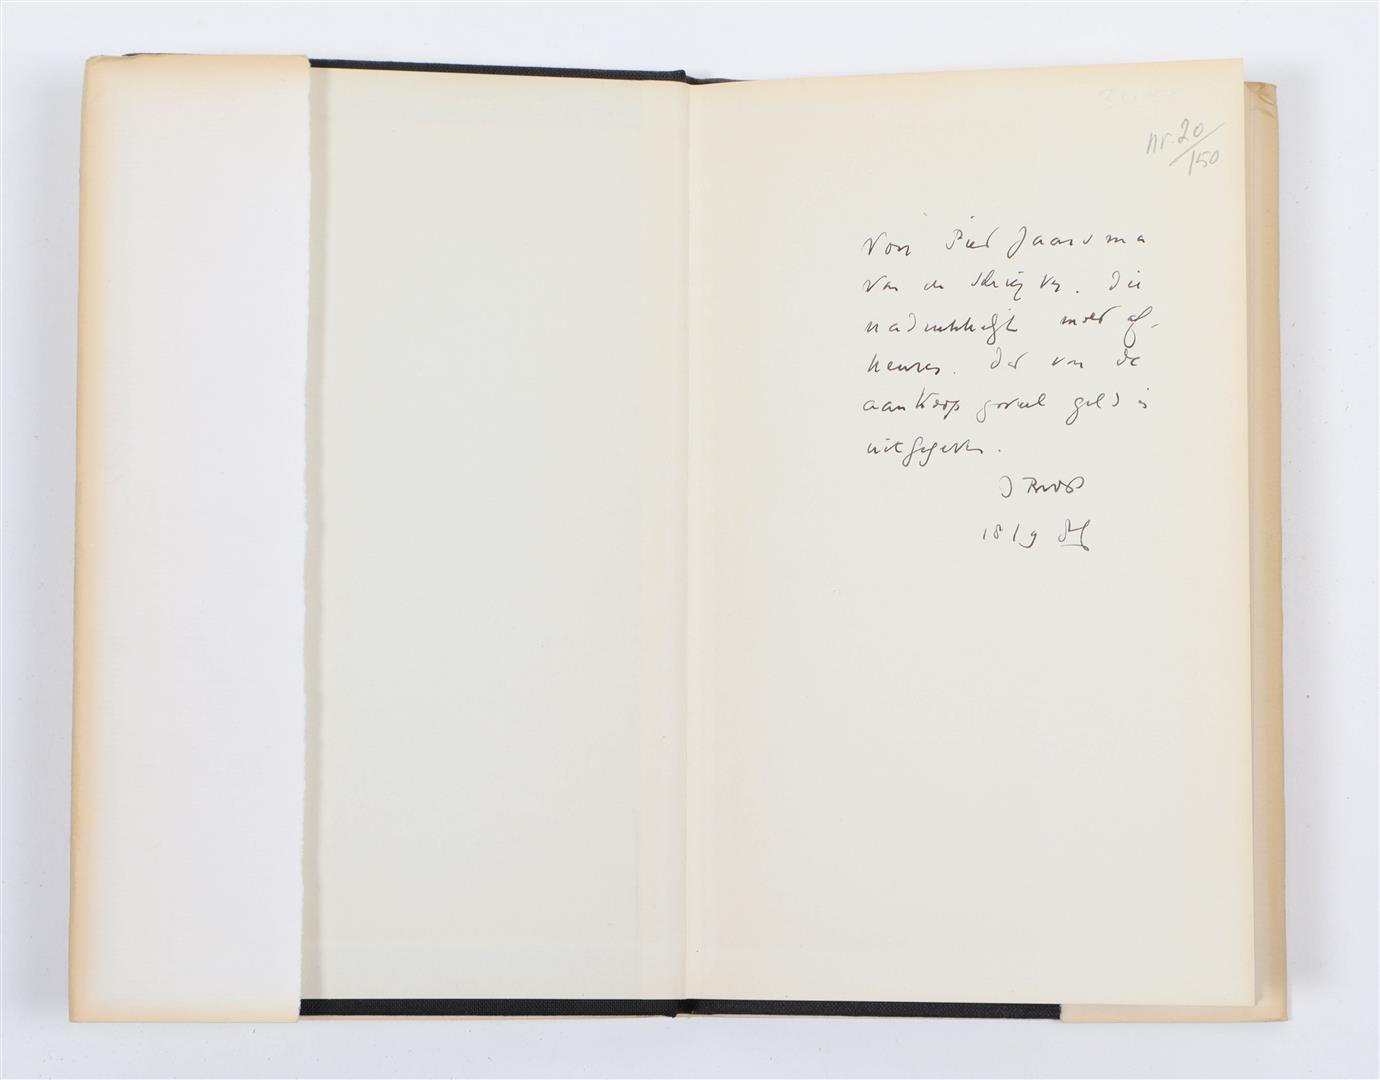 nr. 20/150
Voor Piet Jaarsma
van de schrijver. Die
nadrukkelijk moet af-
keuren. Dat van de
aankoop zoveel geld is
uitgegeven.
J Bros
18/9